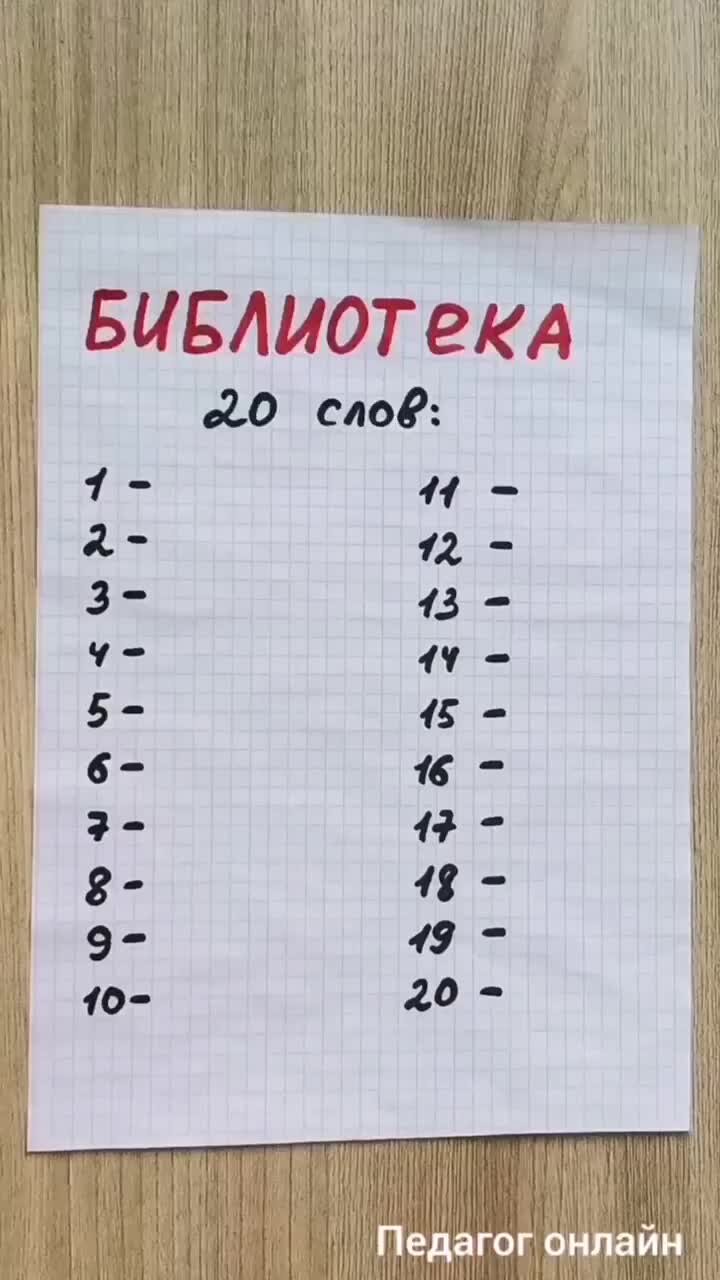 БИБЛИОТЕКА
20 слов:
1 -
2 -
3 -
4 -
5 -
6 -
7 -
8 -
9 -
10 -
11 -
12 -
13 -
14 -
15 -
16 -
17 -
18 -
19 -
20 -
Педагог онлайн